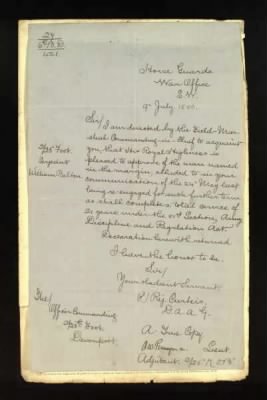 Horse Guards
War Office
S.W.
9th July 1880.
Sir/
I am directed by the Field-Mar-
shal Commanding-in-Chief to acquaint
you, that His Royal Highness is
pleased to approve of the man named
in the margin, alluded to in your
communication of the 24th May last
being re-engaged for such further time
as shall complete a total service of
21 years under the Section, Army
Discipline and Regulation Act.
Declaration herewith returned
2/25th Foot.
Sergeant
William
I have the honor to be.
Sir/
Your obedient Servant.
D.A.A.G.
The/
Officer Commanding
2/25th Foot.
Devonport.
A True Copy
Lieut.
Adjutant.